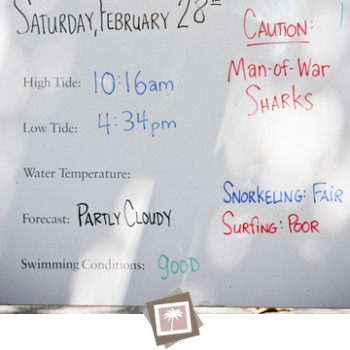 SATURDAY, FEBRUARY 28th
High Tide: 10:16am
Low Tide: 4:34pm
Water Temperature:
Forecast: PARTLY CLOUDY
Swimming Conditions: gOOD
CAUTION:
Man-of-War
SHARKS
SNORKELING: FAIR
SURFING: POOR